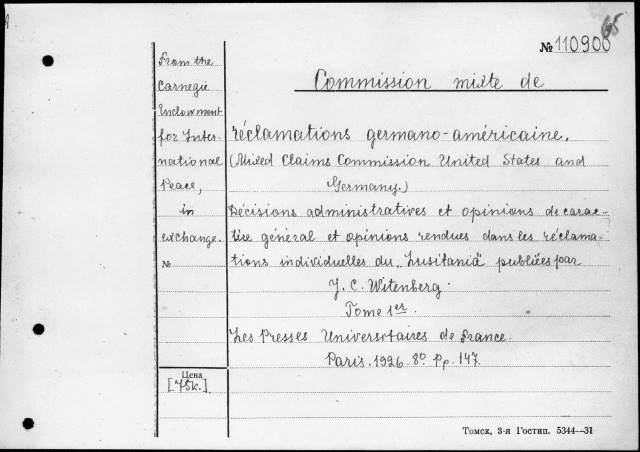 65
№ 110900
From the
Carnegie
Indowment
for Inter-
national
Peace,
in
exchange.
№
Commission mixte de
réclamations germano-américaine.
(Mixed Claims Commission United States and
Germany.)
Décisions administratives et opinions de carac-
tère général et opinions rendues dans les réclama-
tions individuelles du „Lusitania" publiées par
J. C. Witenberg.
Tome 1er.
Les Presses Universitaires de France.
Paris. 1926. 8º. Pp. 147.
Цена
[75k.]
Томск, 3-я Гостип. 5344—31